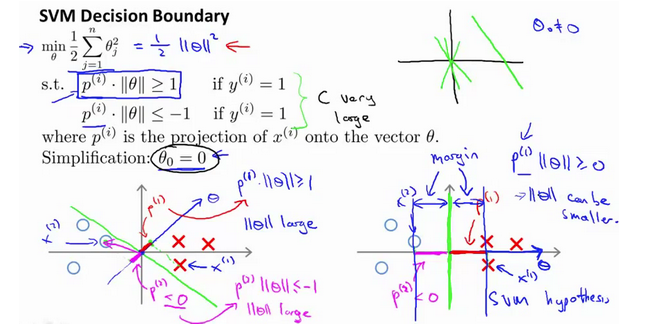 SVM Decision Boundary
θ₀ ≠ 0
→ min_θ 1/2 ∑_{j=1}^{n} θ_j² = 1/2 ||θ||² ←
s.t. p^{(i)} · ‖θ‖ ≥ 1 if y^{(i)} = 1
p^{(i)} · ‖θ‖ ≤ −1 if y^{(i)} = 1
C very
large
where p^{(i)} is the projection of x^{(i)} onto the vector θ.
Simplification: θ₀ = 0 ←
θ
p^{(1)}
p^{(1)} · ||θ|| ≥ 1
||θ|| large
x^{(2)}
x^{(1)}
p^{(2)}
< 0
p^{(2)} ||θ|| ≤ -1
||θ|| large
margin
p^{(1)} ||θ|| ≥ 0
→ ||θ|| can be
smaller.
x^{(2)}
p^{(1)}
θ
x^{(1)}
p^{(2)} < 0
SVM hypothesis